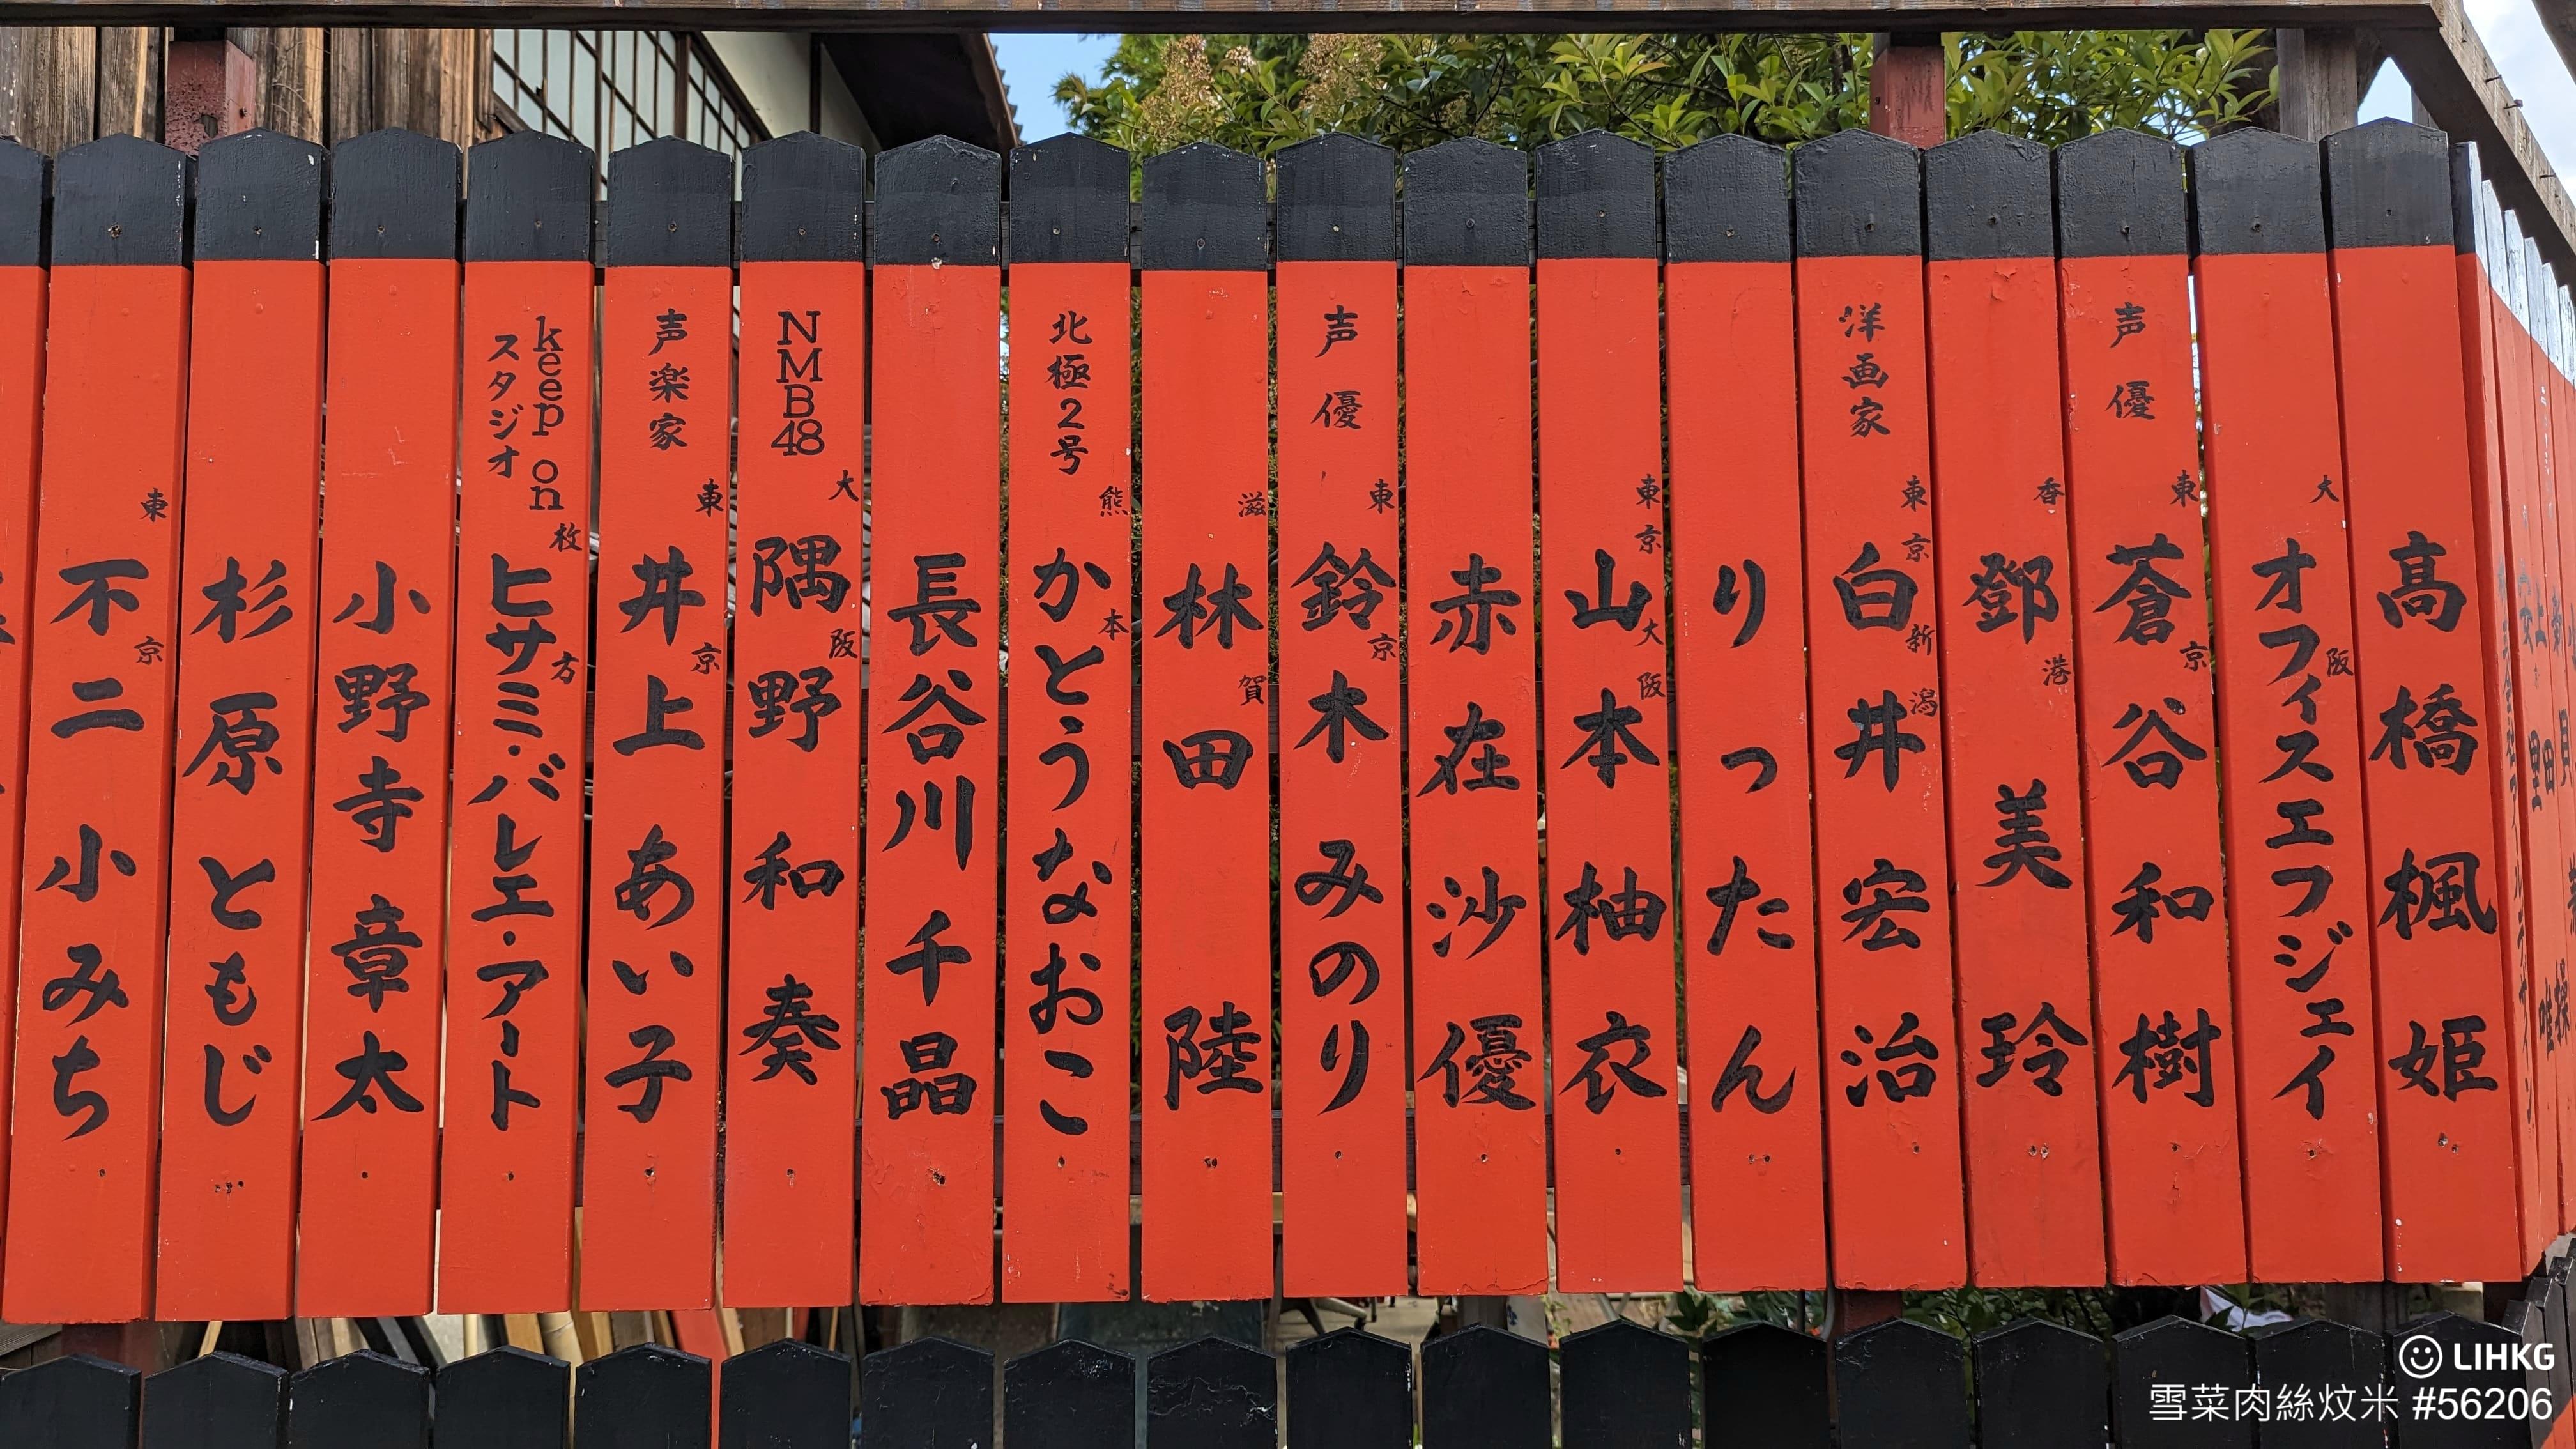 高橋楓姫
大阪
オフィスエフジェイ
声優
東京
蒼谷和樹
香港
鄧美玲
洋画家
東京
新潟
白井宏治
りったん
東京
大阪
山本柚衣
赤在沙優
声優
東京
鈴木みのり
滋賀
林田陸
北極2号
熊本
かとうなおこ
長谷川千晶
NMB48
大阪
隅野和奏
声楽家
東京
井上あい子
keep on
スタジオ
枚方
ヒサミ・バレエ・アート
小野寺章太
杉原ともじ
東京
不二小みち
LIHKG
雪菜肉絲炆米 #56206